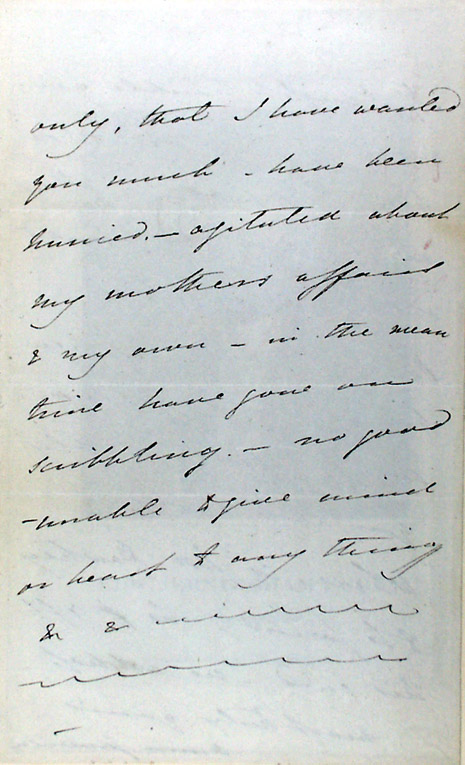 only, that I have wanted
you much - have been
hurried. - agitated about
my mothers affairs
& my own - in the mean
time have gone on
scribbling. - no good
- unable to give mind
or heart to any thing
& &